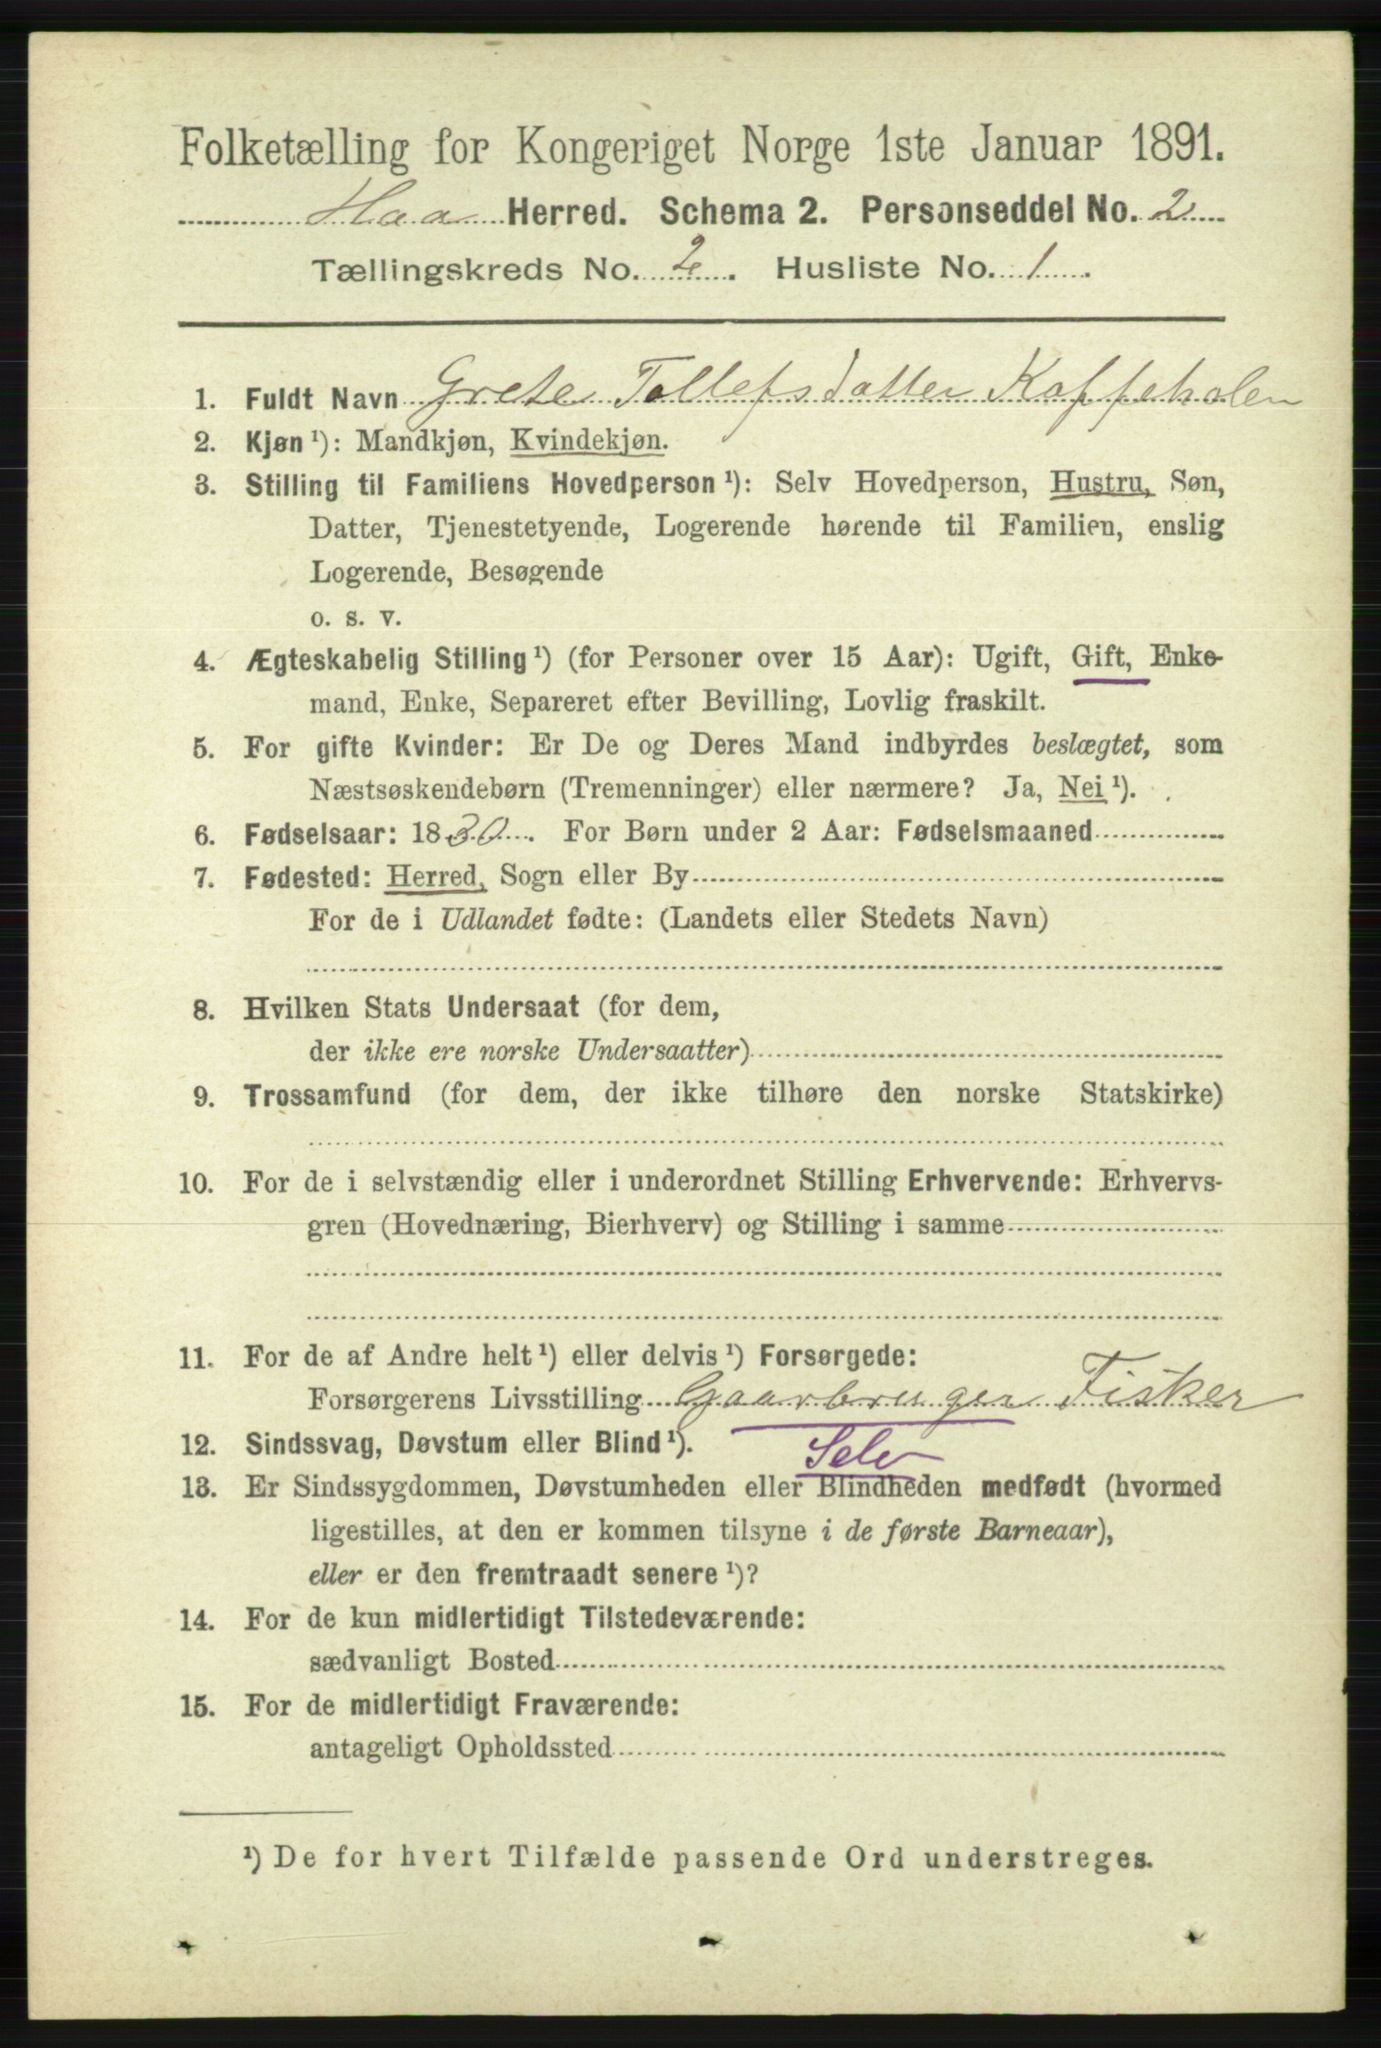 Folketælling for Kongeriget Norge 1ste Januar 1891.
Haa Herred. Schema 2. Personseddel No. 2
Tællingskreds No. 2. Husliste No. 1.
1. Fuldt Navn Grete Tollefsdatter Kaffeholen
2. Kjøn ¹): Mandkjøn, Kvindekjøn.
3. Stilling til Familiens Hovedperson ¹): Selv Hovedperson, Hustru, Søn,
Datter, Tjenestetyende, Logerende hørende til Familien, enslig
Logerende, Besøgende
o. s. v.
4. Ægteskabelig Stilling ¹) (for Personer over 15 Aar): Ugift, Gift, Enke-
mand, Enke, Separeret efter Bevilling, Lovlig fraskilt.
5. For gifte Kvinder: Er De og Deres Mand indbyrdes beslægtet, som
Næstsøskendebørn (Tremenninger) eller nærmere? Ja, Nei ¹).
6. Fødselsaar: 1830. For Børn under 2 Aar: Fødselsmaaned
7. Fødested: Herred, Sogn eller By
For de i Udlandet fødte: (Landets eller Stedets Navn)
8. Hvilken Stats Undersaat (for dem,
der ikke ere norske Undersaatter)
9. Trossamfund (for dem, der ikke tilhøre den norske Statskirke)
10. For de i selvstændig eller i underordnet Stilling Erhvervende: Erhvervs-
gren (Hovednæring, Bierhverv) og Stilling i samme
11. For de af Andre helt ¹) eller delvis ¹) Forsørgede:
Forsørgerens Livsstilling Gaardbruger Fisker
12. Sindssvag, Døvstum eller Blind ¹). Selv
13. Er Sindssygdommen, Døvstumheden eller Blindheden medfødt (hvormed
ligestilles, at den er kommen tilsyne i de første Barneaar),
eller er den fremtraadt senere ¹)?
14. For de kun midlertidigt Tilstedeværende:
sædvanligt Bosted
15. For de midlertidigt Fraværende:
antageligt Opholdssted
¹) De for hvert Tilfælde passende Ord understreges.